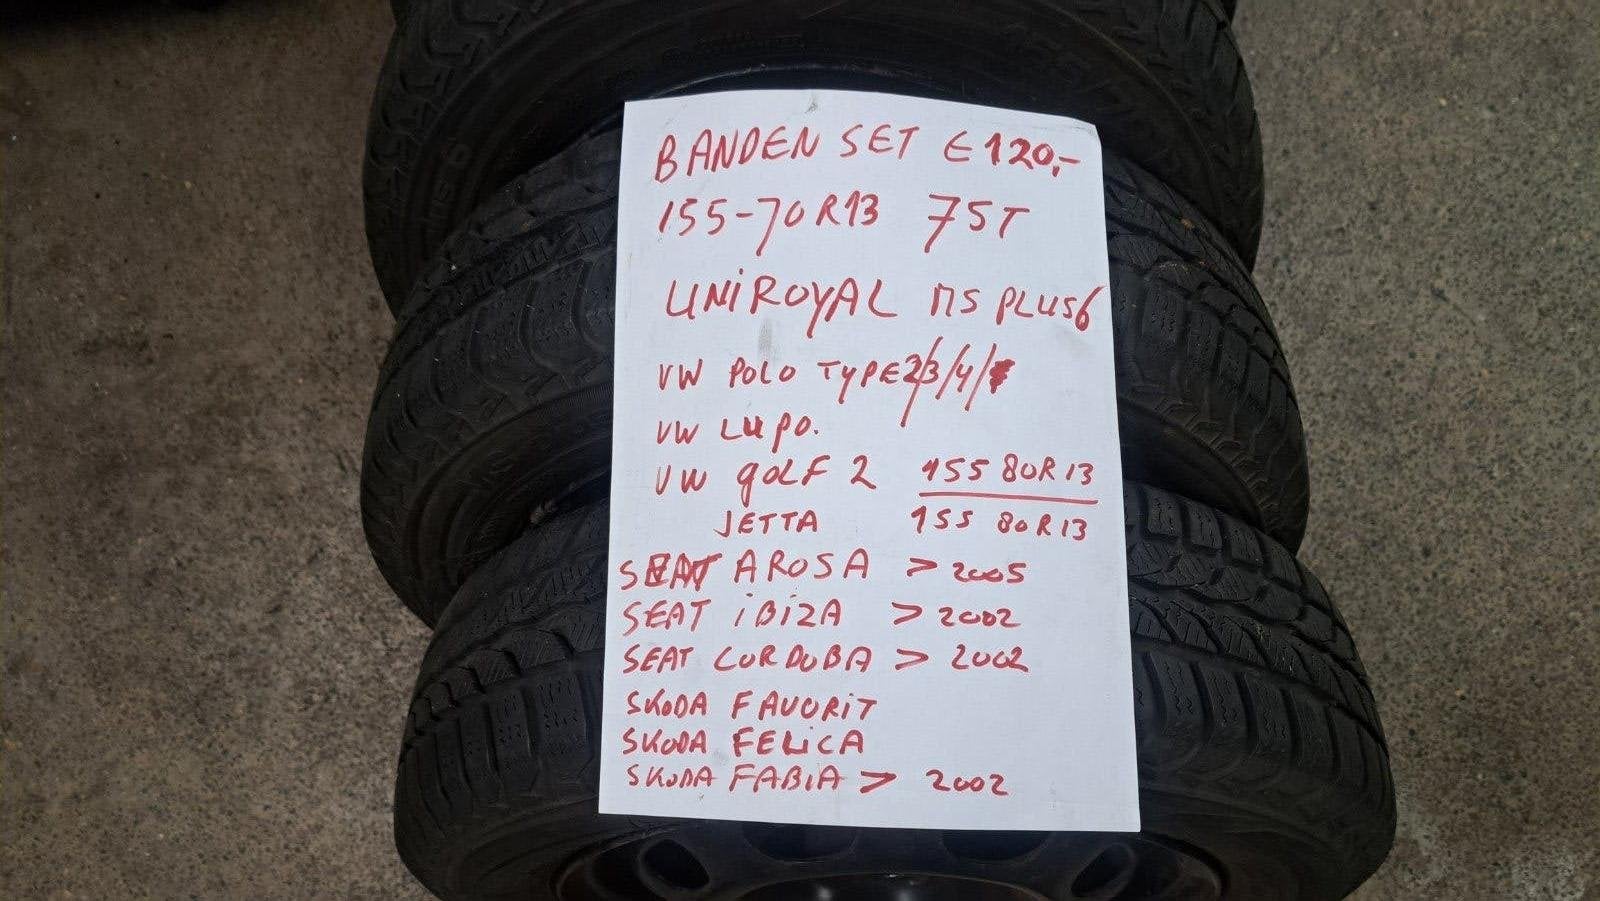 BANDEN SET € 120,-
155-70R13 75T
UNIROYAL MS PLUS6
VW POLO TYPE 2/3/4/
VW LUPO.
VW golF 2 155 80R13
JETTA 155 80R13
SEAT AROSA > 2005
SEAT iBiZA > 2002
SEAT CORDOBA > 2002
SKODA FAVORiT
SKODA FELiCA
SKODA FABIA > 2002